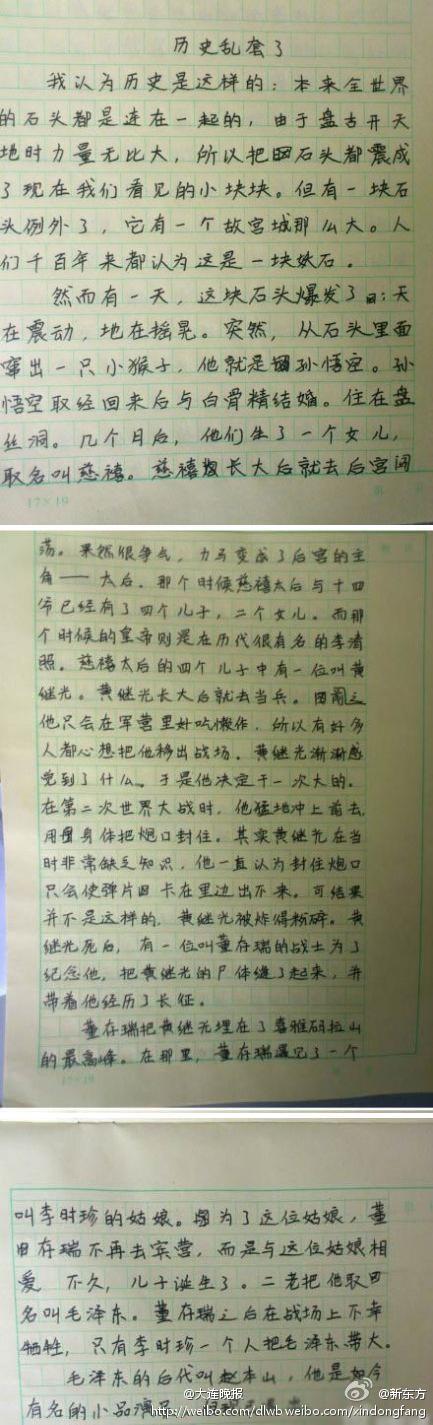 历史乱套了
我认为历史是这样的：本来全世界
的石头都是连在一起的，由于盘古开天
地时力量无比大，所以把石头都震成
了现在我们看见的小块块。但有一块石
头例外了，它有一个故宫城那么大。人
们千百年来都认为这是一块妖石。
然而有一天，这块石头爆发了：天
在震动，地在摇晃。突然，从石头里面
窜出一只小猴子，他就是孙悟空。孙
悟空取经回来后与白骨精结婚。住在盘
丝洞。几个月后，他们生了一个女儿，
取名叫慈禧。慈禧长大后就去后宫闯
17×19
荡。果然很争气，力马变成了后宫的主
角——太后。那个时候慈禧太后与十四
爷已经有了四个儿子，二个女儿。而那
个时候的皇帝则是在历代很有名的李清
照。慈禧太后的四个儿子中有一位叫黄
继光。黄继光长大后就去当兵。
他只会在军营里好吃懒作，所以有好多
人都心想把他移出战场。黄继光渐渐感
觉到了什么。于是他决定干一次大的。
在第二次世界大战时，他猛地冲上前去，
用身体把炮口封住。其实黄继光在当
时非常缺乏知识，他一直认为封住炮口
只会使弹片卡在里边出不来。可结果
并不是这样的，黄继光被炸得粉碎。黄
继光死后，有一位叫董存瑞的战士为了
纪念他，把黄继光的尸体缝了起来，并
带着他经历了长征。
董存瑞把黄继光埋在了喜雅码拉山
的最高峰。在那里，董存瑞遇见了一个
17×19
叫李时珍的姑娘。为了这位姑娘，董
存瑞不再去宾营，而是与这位姑娘相
爱 不久，儿子诞生了。二老把他取
名叫毛泽东。董存瑞之后在战场上不幸
牺牲，只有李时珍一个人把毛泽东带大。
毛泽东的后代叫赵本山，他是如今
有名的小品演
@大连晚报
@新东方
http://weibo.com/dlwbweibo
http://weibo.com/xindongfang